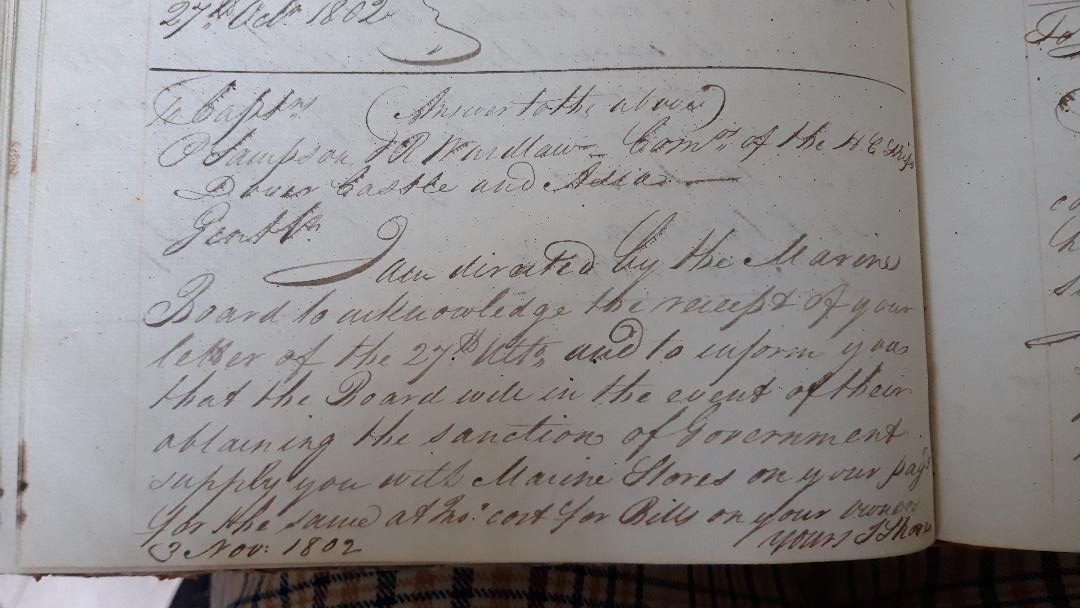 27th Octo 1802
To Captns (Answer to the above)
P Sampson & R Wardlaw Comrs of the H C Ships
Dover Castle and Asia
Gentln
I am directed by the Marine
Board to acknowledge the receipt of your
letter of the 27th Ulto and to inform you
that the Board will in the event of their
obtaining the sanction of Government
supply you with Marine Stores on your payg
for the same at cost for Bills on your owners
3 Nov: 1802 yours